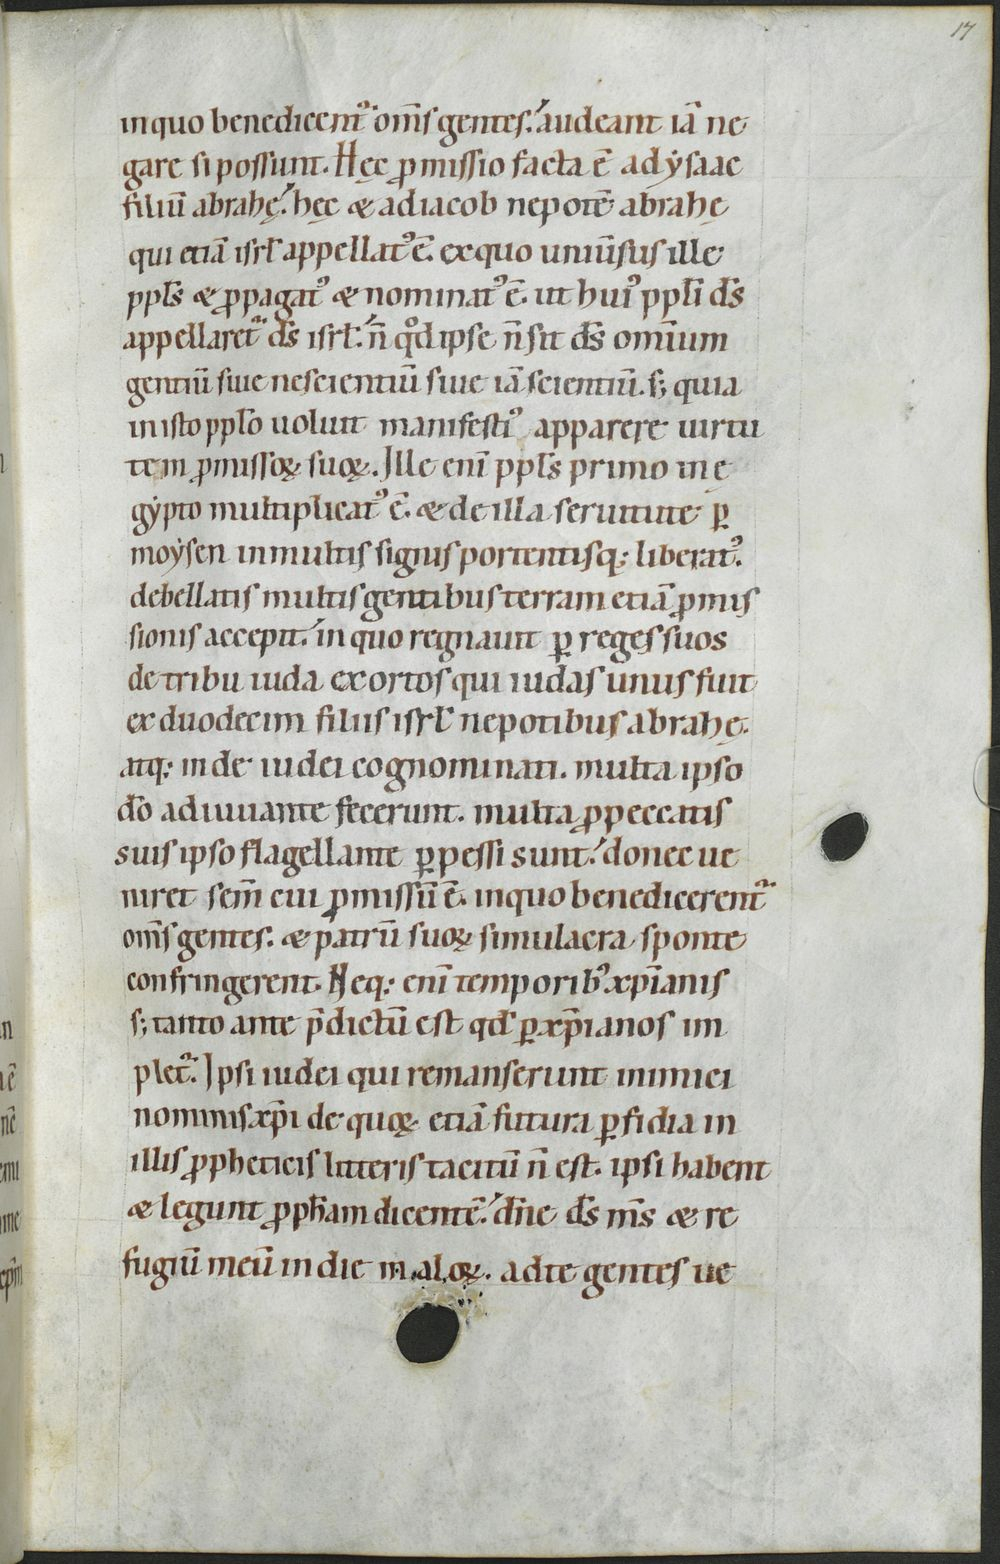 17
inquo benedicent᷑ om̄s gentes. audeant iā ne
gare si possunt. Hęc p̄missio facta ē ad ẏsaac
filiū abrahę. hęc & adiacob nepotē abrahę
qui etiā isrł appellat᾽ ē. ex quo uniūsus ille
ppłs & ꝓpagat᾽ & nominat᾽ ē. ut hui᾽ ppłi d̄s
appellaret᷑ d̄s isrł. n̄ qđ ipse n̄ sit d̄s omnium
gentiū siue nescientiū siue iā scientiū. s; quia
in isto ppło uoluit manifesti᾽ apparere uirtu
tem p̄missoꝝ suoꝝ. Ille eni ppłs primo in ę
gẏpto multiplicat᾽ ē. & de illa seruitute ꝑ
moẏsen in multis signis portentisq; liberat᾽.
debellatis multis gentibus terram etiā ꝓmis
sionis accepit. in quo regnauit ꝑ reges suos
de tribu iuda exortos qui iudas unus fuit
ex duodecim filiis isrł nepotibus abrahę.
atq; inde iudei cognominati. multa ipso
dō adiuuante fecerunt. multa ꝓ peccatis
suis ipso flagellante ꝑpessi sunt. donec ue
niret sem̄ cui ꝓmissū ē. in quo benedicerent᷑
om̄s gentes. & patrū suoꝝ simulacra sponte
confringerent. Neq; eni temporib᾽ xp̄ianis
s; tanto ante p̄dictū est qđ ꝑ xp̄ianos im
plet᷑. Ipsi iudei qui remanserunt inimici
nominis xp̄i de quoꝝ etiā futura ꝑfidia in
illis ꝓpheticis litteris tacitū n̄ est. ipsi habent
& legunt ꝓpħam dicentē. dn̄e d̄s m̄s & re
fugiū meū in die maloꝝ. ad te gentes ue